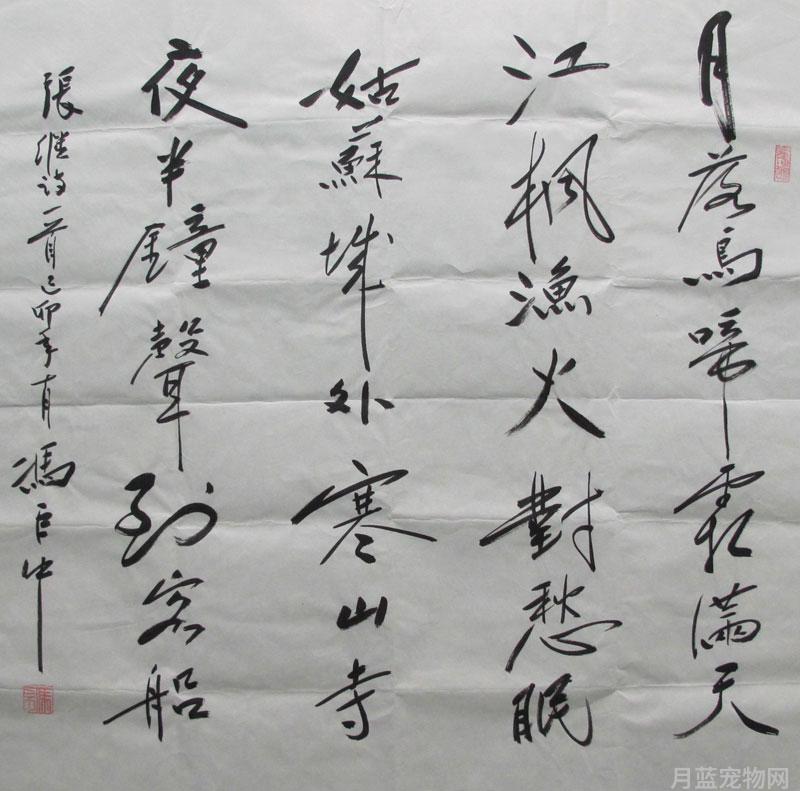 月落烏啼霜滿天
江楓漁火對愁眠
姑蘇城外寒山寺
夜半鐘聲到客船
張繼詩一首己卯年有馮臣中
月蓝宠物网